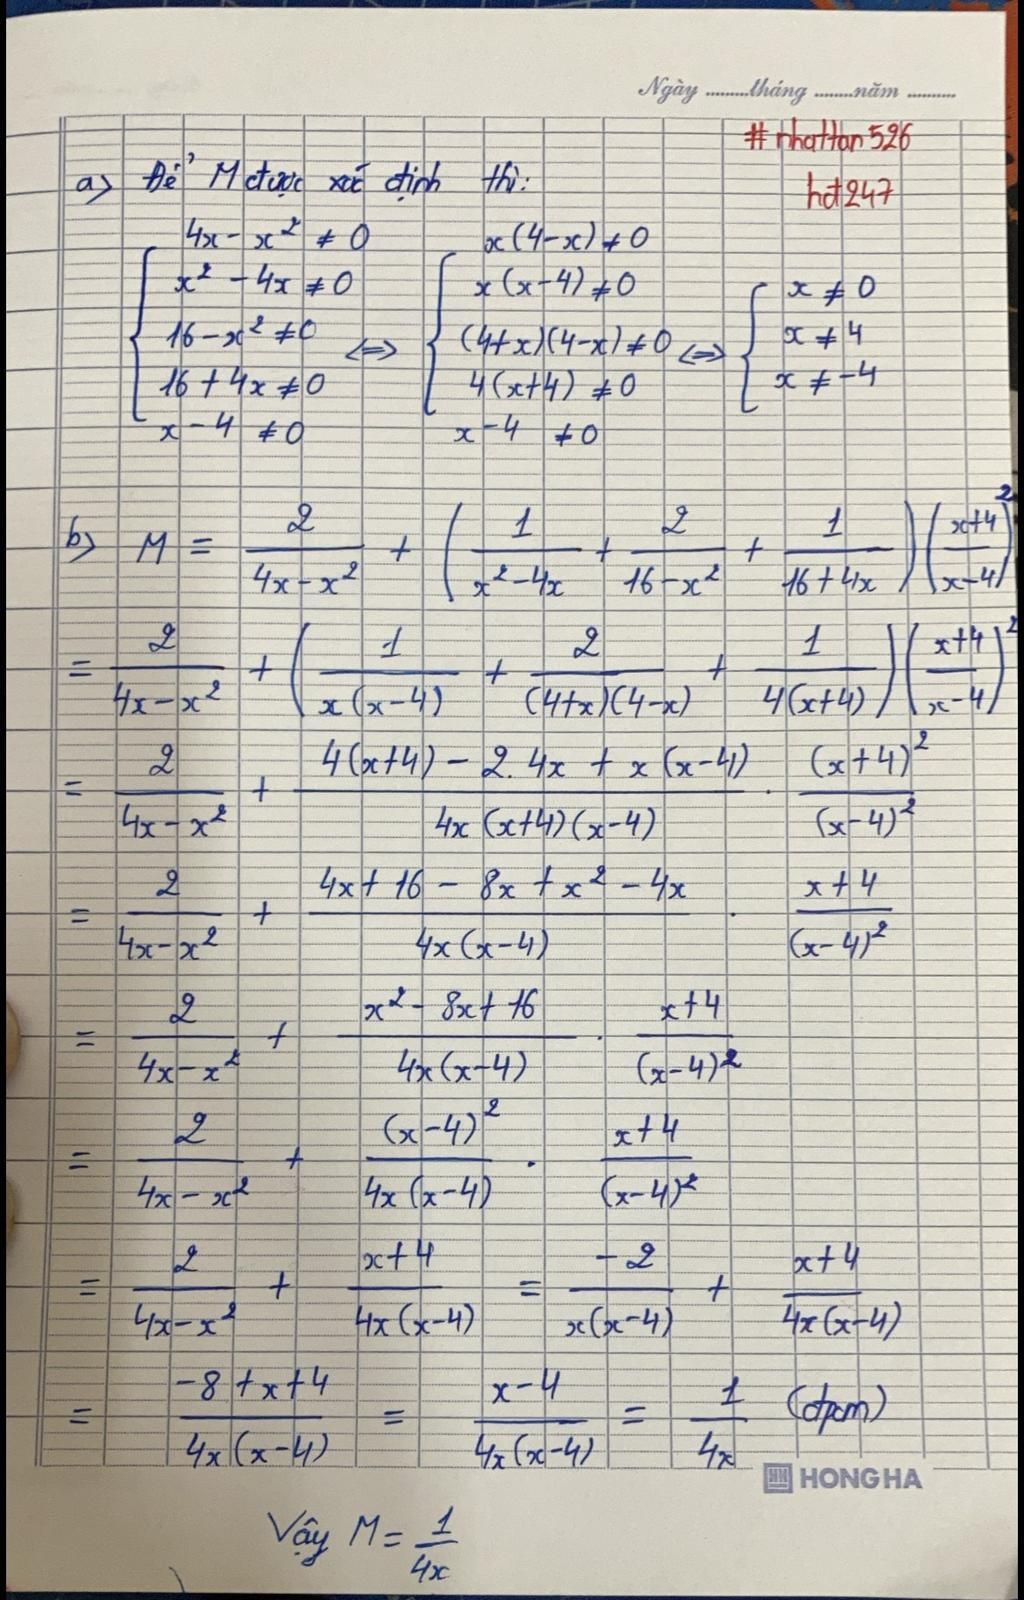 Ngày .........tháng ........năm ..........
#nhattan526
hd247
a) Để M được xác định thì:
{ 4x - x² ≠ 0
x² - 4x ≠ 0
16 - x² ≠ 0
16 + 4x ≠ 0
x - 4 ≠ 0
⇔ { x(4-x) ≠ 0
x(x-4) ≠ 0
(4+x)(4-x) ≠ 0
4(x+4) ≠ 0
x - 4 ≠ 0
⇔ { x ≠ 0
x ≠ 4
x ≠ -4
b) M = 2/(4x - x²) + (1/(x² - 4x) + 2/(16 - x²) + 1/(16 + 4x)) ((x+4)/(x-4))²
= 2/(4x - x²) + (1/(x(x-4)) + 2/((4+x)(4-x)) + 1/(4(x+4))) ((x+4)/(x-4))²
= 2/(4x - x²) + (4(x+4) - 2.4x + x(x-4))/(4x(x+4)(x-4)) . (x+4)²/(x-4)²
= 2/(4x - x²) + (4x + 16 - 8x + x² - 4x)/(4x(x-4)) . (x+4)/(x-4)²
= 2/(4x - x²) + (x² - 8x + 16)/(4x(x-4)) . (x+4)/(x-4)²
= 2/(4x - x²) + (x-4)²/(4x(x-4)) . (x+4)/(x-4)²
= 2/(4x - x²) + (x+4)/(4x(x-4)) = -2/(x(x-4)) + (x+4)/(4x(x-4))
= (-8 + x + 4)/(4x(x-4)) = (x-4)/(4x(x-4)) = 1/(4x) (đpcm)
HONG HA
Vậy M = 1/(4x)